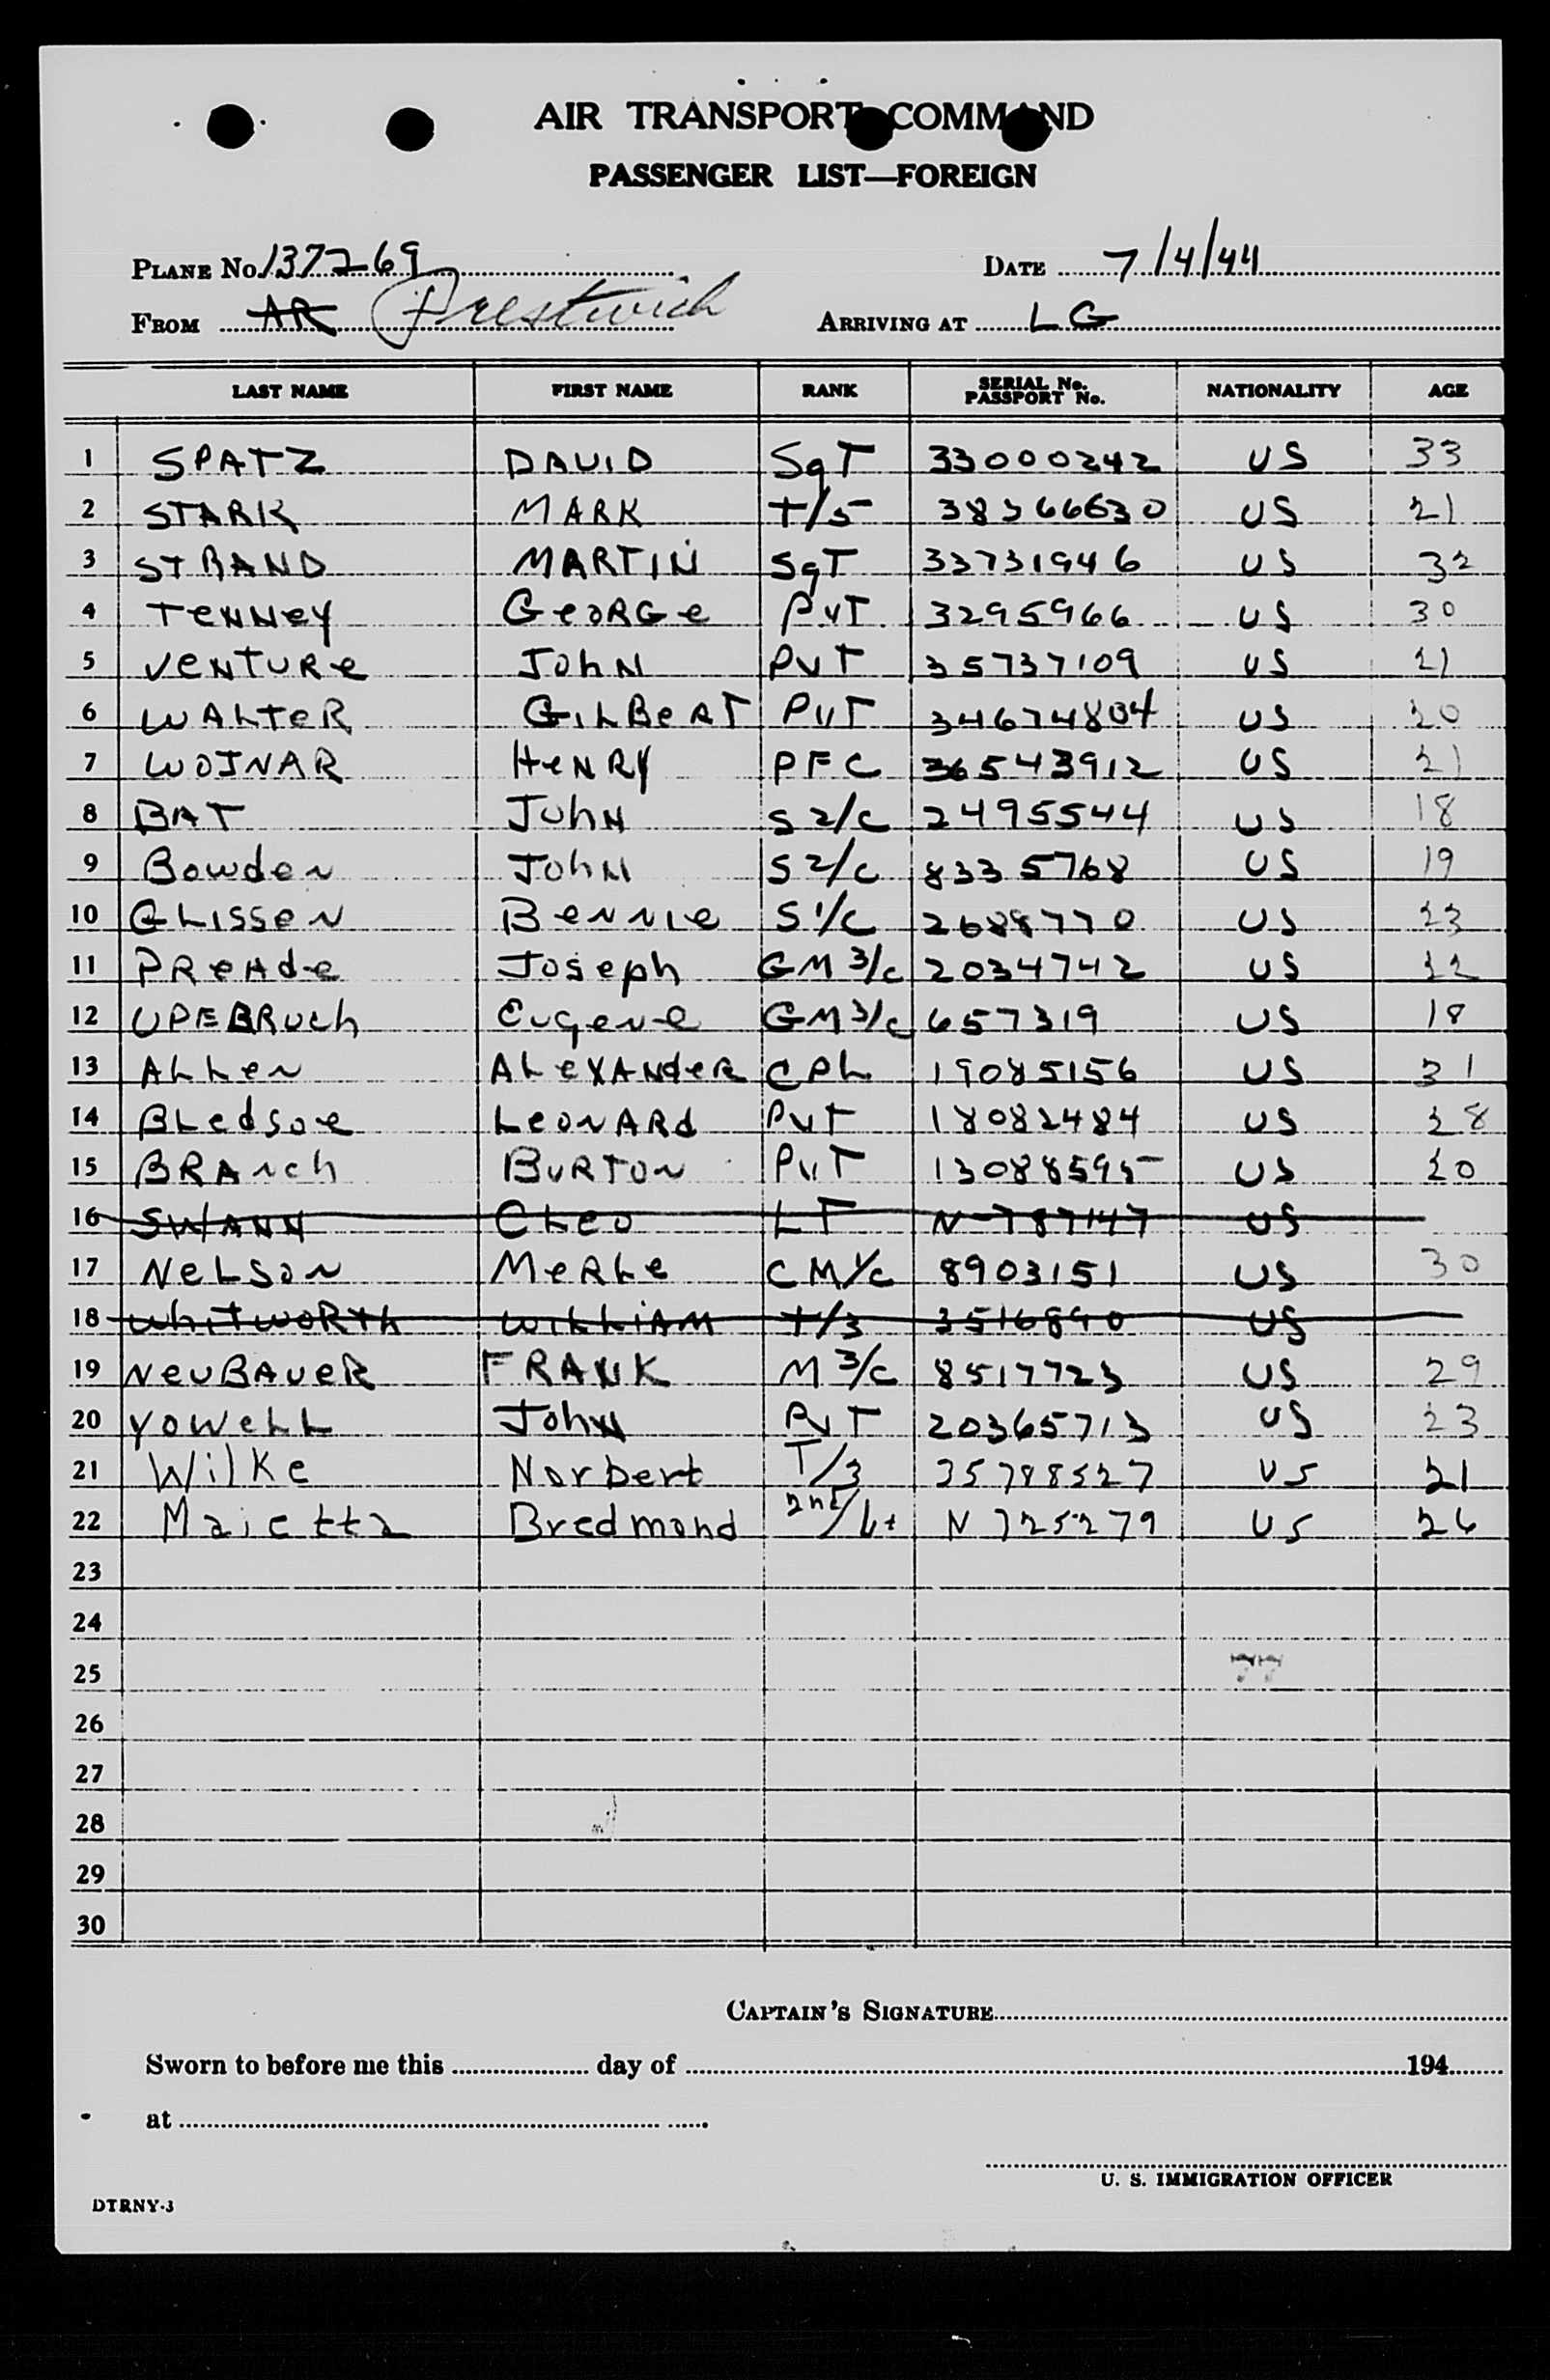 AIR TRANSPORT COMMAND
PASSENGER LIST—FOREIGN
PLANE No. 137269 DATE 7/4/44
FROM AR Prestwich ARRIVING AT LG
LAST NAME FIRST NAME RANK SERIAL No. PASSPORT No. NATIONALITY AGE
1 SPATZ DAVID SgT 33000242 US 33
2 STARK MARK T/5 38366630 US 21
3 STRAND MARTIN SgT 33731946 US 32
4 TeNNey GeORGe PvT 3295966 US 30
5 VeNTURe JohN PvT 35737109 US 21
6 WALTeR GiLBeRT PvT 34674804 US 20
7 WOJNAR HeNRy PFC 36543912 US 21
8 BAT JohN S 2/c 2495544 US 18
9 Bowden JohN S 2/c 833 5768 US 19
10 GLisseN BeNNie S 1/c 2688770 US 23
11 PReAde Joseph GM 3/c 2034742 US 22
12 UPEBRUch Eugene GM 3/c 657319 US 18
13 ALLen ALeXANdeR CPL 19085156 US 31
14 BLedsoe LeoNARd PvT 18082484 US 28
15 BRANch BURTON PvT 13088595 US 20
16 SWANN CLeo LT N-787147 US
17 NeLSoN MeRLe CM 1/c 8903151 US 30
18 WhiTWORTh WiLLiAM T/3 3516890 US
19 NeUBAUeR FRANK M 3/c 8517723 US 29
20 YOWeLL JohN PvT 20365713 US 23
21 Wilke Norbert T/3 35788527 US 21
22 Maietta Bredmond 2nd/Lt N 725279 US 26
23
24
25
26
27
28
29
30
CAPTAIN'S SIGNATURE
Sworn to before me this day of 194
at
U. S. IMMIGRATION OFFICER
DTRNY-3